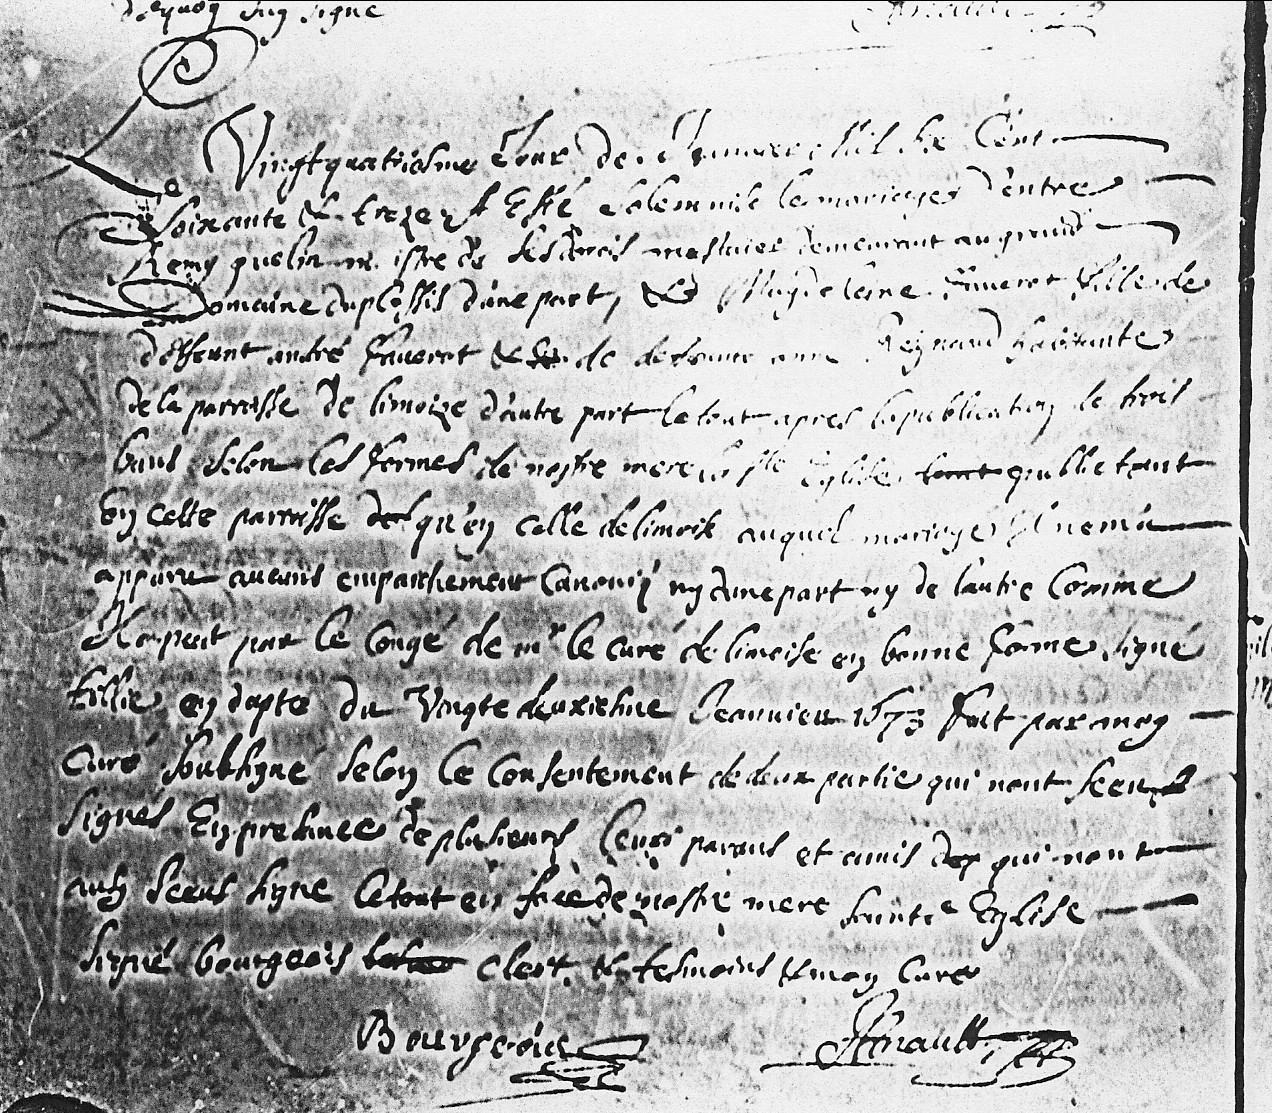 dequoy suy signe
Le
Vingtquatriesme Jour de Janvier Mil Six Cent
Soixante & treze A Esté Solemnisé le mariage d'entre
Remy quelin de mestaier demeurant au grand
Domaine duplessis d'une part, & Magdeleine faverot fille de
deffunt andré faverot & de deffunte anne Reignaud habitante
de la parroisse de limoize d'autre part le tout apres la publication de trois
bans selon les formes de nostre mere Ste Eglise publie tant
En cette parroisse qu'en celle de limoise auquel mariage Il nema
apparu aucuns empaschement Canoniq ny d'une part ny de l'autre Comme
Il apeut par le Congé de mr le curé de limoise en bonne forme signé
tillie en dapte du Vingtedeuxiesme Jeanvier 1673 fait par moy
Curé Soubsigné Selon le Consentement de deux partie qui nont Sceu
signés En presance de plusieurs leurs parans et amis qui nont
ausy Sceus signe le tout en face de nostre mere Sainte Eglise
Signé bourgeois clerc tesmoins & moy Curé
Bourgeois Henault